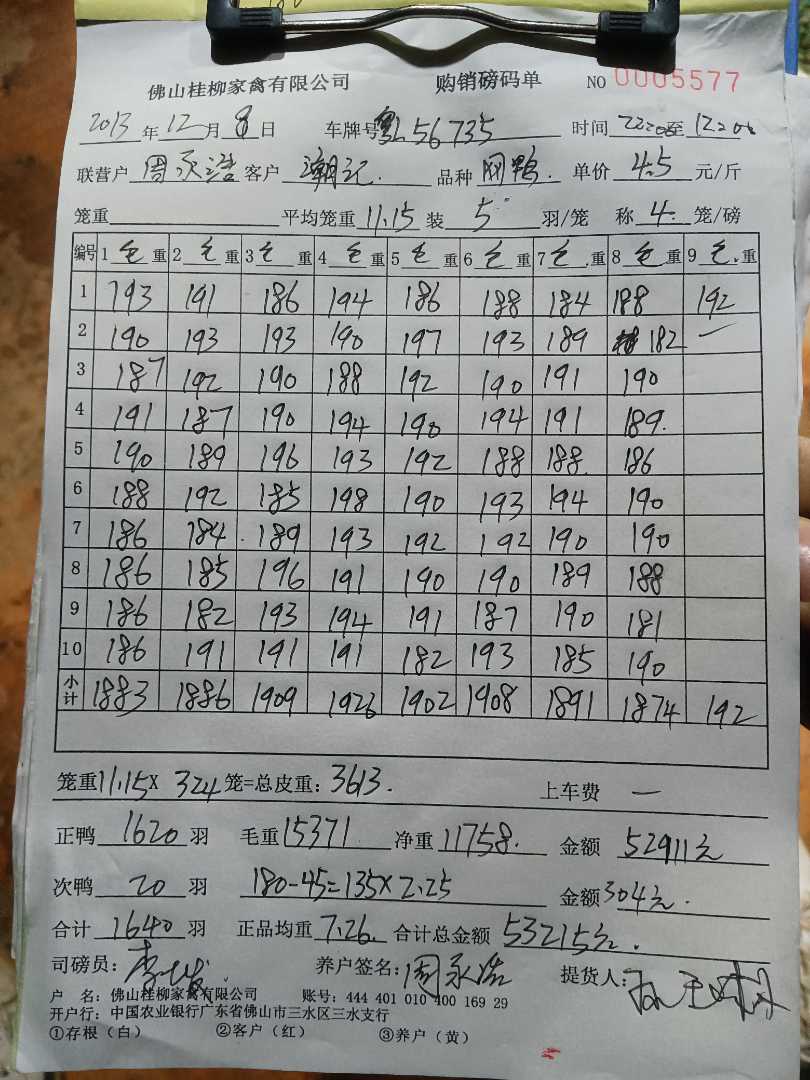 佛山桂柳家禽有限公司 购销磅码单 NO 0005577
2013年12月8日 车牌号粤L56735 时间22:00至12:00
联营户周永浩客户潮记. 品种网鸭. 单价4.5元/斤
笼重 平均笼重11.15装5羽/笼 称4笼/磅
编号 1毛重 2毛重 3毛重 4毛重 5毛重 6毛重 7毛重 8毛重 9毛重
1 193 191 186 194 186 188 184 188 192
2 190 193 193 190 197 193 189 182 —
3 187 192 190 188 192 190 191 190
4 191 187 190 194 190 194 191 189.
5 190 189 196 193 192 188 188 186
6 188 192 185 198 190 193 194 190
7 186 184 189 193 192 192 190 190
8 186 185 196 191 190 190 189 188
9 186 182 193 194 191 187 190 181
10 186 191 191 191 182 193 185 190
小计 1883 1886 1909 1926 1902 1908 1891 1874 192
笼重11.15X 324笼=总皮重:3613. 上车费 —
正鸭1620羽 毛重15371 净重11758. 金额52911元
次鸭20羽 180-45=135×2.25 金额304元.
合计1640羽 正品均重7.26. 合计总金额53215元.
司磅员: 养户签名:周永浩 提货人:
户 名:佛山桂柳家禽有限公司 账号:444 401 010 400 169 29
开户行:中国农业银行广东省佛山市三水区三水支行
①存根(白) ②客户(红) ③养户(黄)